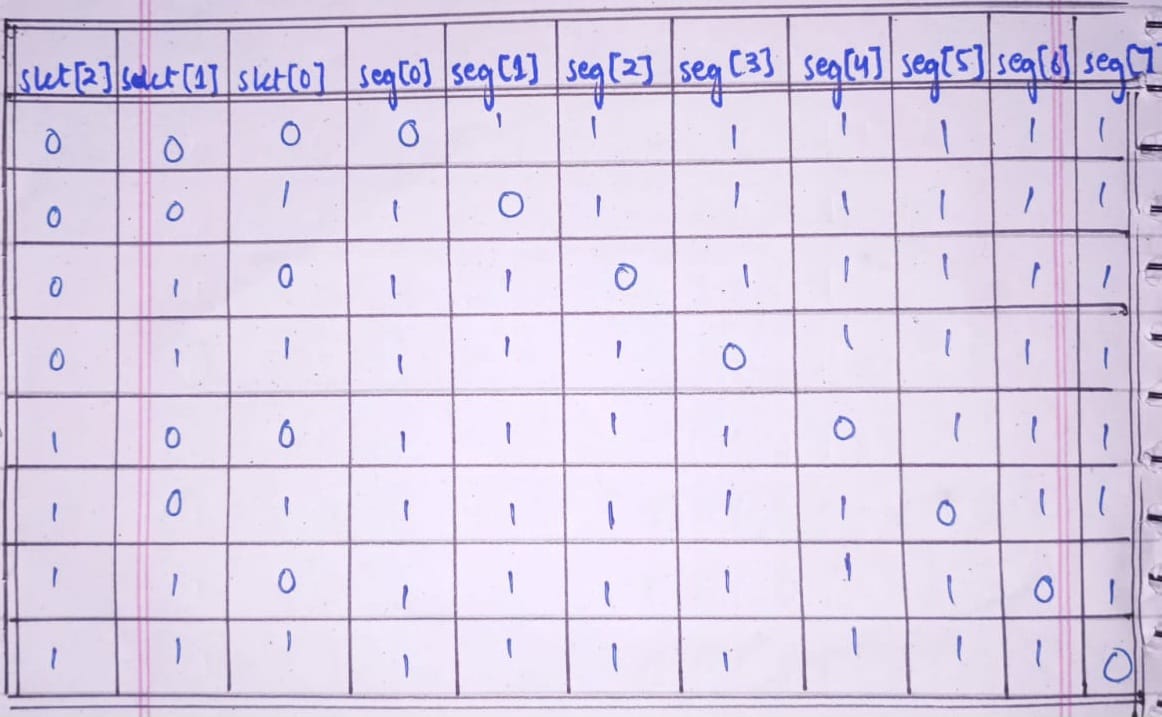 slct[2] select[1] slct[0] seg[0] seg[1] seg[2] seg[3] seg[4] seg[5] seg[6] seg[7
0 0 0 0 1 1 1 1 1 1 1
0 0 1 1 0 1 1 1 1 1 1
0 1 0 1 1 0 1 1 1 1 1
0 1 1 1 1 1 0 1 1 1 1
1 0 0 1 1 1 1 0 1 1 1
1 0 1 1 1 1 1 1 0 1 1
1 1 0 1 1 1 1 1 1 0 1
1 1 1 1 1 1 1 1 1 1 0